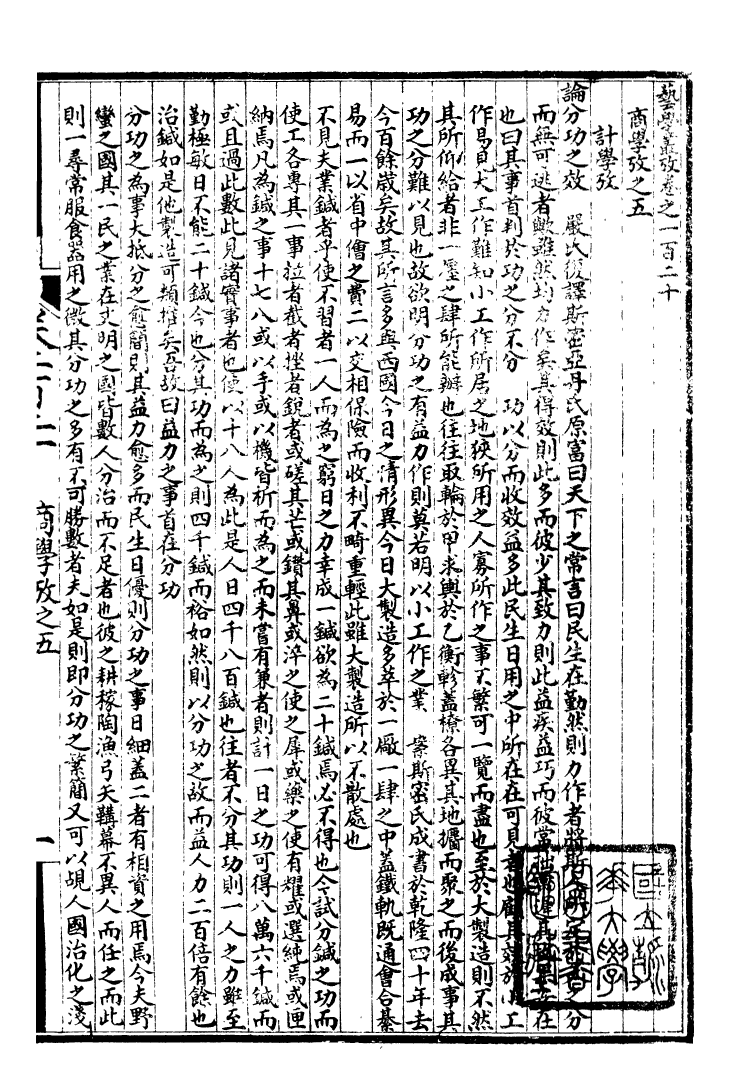 藝學叢攷卷之一百二十
商學攷之五
計學攷
論分功之效　嚴氏復譯斯密亞丹氏原富曰天下之常言曰民生在勤然則力作者將斯人所
而無可逃者歟雖然均力作矣其得效則此多而彼少其致力則此益疾益巧而彼常拙
也曰其事首判於功之分不分　功以分而收效益多此民生日用之中所在在可見者也顧其效於小工
作易見大工作難知小工作所居之地狹所用之人寡所作之事不繁可一覽而盡也至於大製造則不然
其所仰給者非一廛之肆所能辦也往往取輪於甲求輿於乙衡軫蓋橑各異其地攟而聚之而後成事其
功之分難以見也故欲明分功之有益力作則莫若明以小工作之業　案斯密氏成書於乾隆四十年去
今百餘歲矣故其所言多與西國今日之情形異今日大製造多萃於一廠一肆之中蓋鐵軌既通會合綦
易而一以省中儈之費二以交相保險而收利不畸重輕此雖大製造所以不散處也
不見夫業鍼者乎使不習者一人而為之窮日之力幸成一鍼欲為二十鍼焉必不得也今試分鍼之功而
使工各專其一事拉者截者挫者銳者或磋其芒或鑽其鼻或淬之使之犀或藥之使有耀或選純焉或匣
納焉凡為鍼之事十七八或以手或以機皆析而為之而未嘗有兼者則計一日之功可得八萬六千鍼而
或且過此數此見諸實事者也使以十八人為此是人日四千八百鍼也往者不分其功則一人之力雖至
勤極敏日不能二十鍼今也分其功而為之則四千鍼而裕如然則以分功之故而益人力二百倍有餘也
治鍼如是他製造可類推矣吾故曰益力之事首在分功
分功之為事大抵分之愈簡則其益力愈多而民生日優則分功之事日細蓋二者有相資之用焉今夫野
蠻之國其一民之業在文明之國皆數人分治而不足者也彼之耕稼陶漁弓矢鞲幕不異人而任之而此
則一尋常服食器用之微其分功之多有不可勝數者夫如是則即分功之繁簡又可以覘人國治化之淺
商學攷之五
一